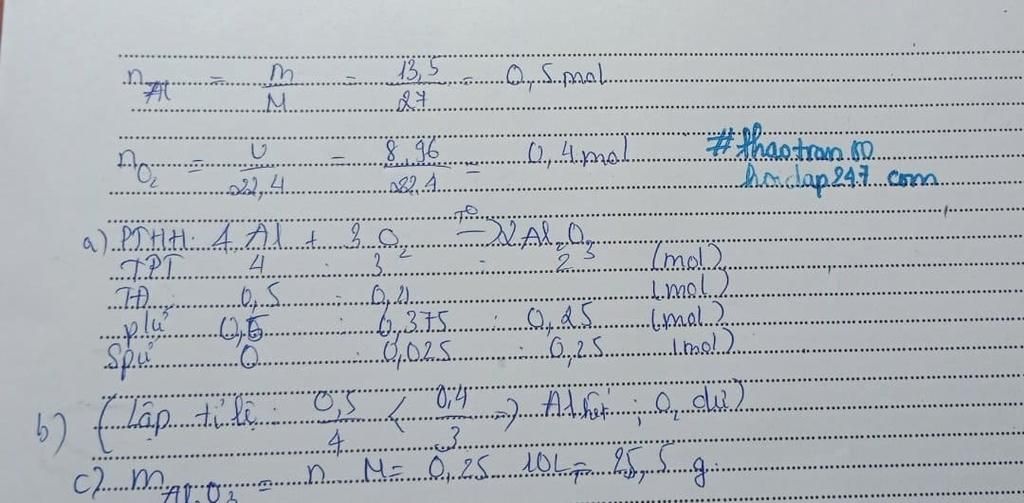 n_Al = m/M = 13,5/27 = 0,5 mol
n_O₂ = V/22,4 = 8,96/22,4 = 0,4 mol
#thaotran80
hoidap247.com
a) PTHH: 4Al + 3O₂ →(t⁰) 2Al₂O₃
TPT 4 : 3 : 2 (mol)
TĐ: 0,5 : 0,4 (mol)
pứ 0,5 : 0,375 : 0,25 (mol)
Spứ 0 : 0,025 : 0,25 (mol)
b) (Lập tỉ lệ: 0,5/4 < 0,4/3 => Al hết; O₂ dư)
c) m_Al₂O₃ = n M = 0,25 102 = 25,5 g